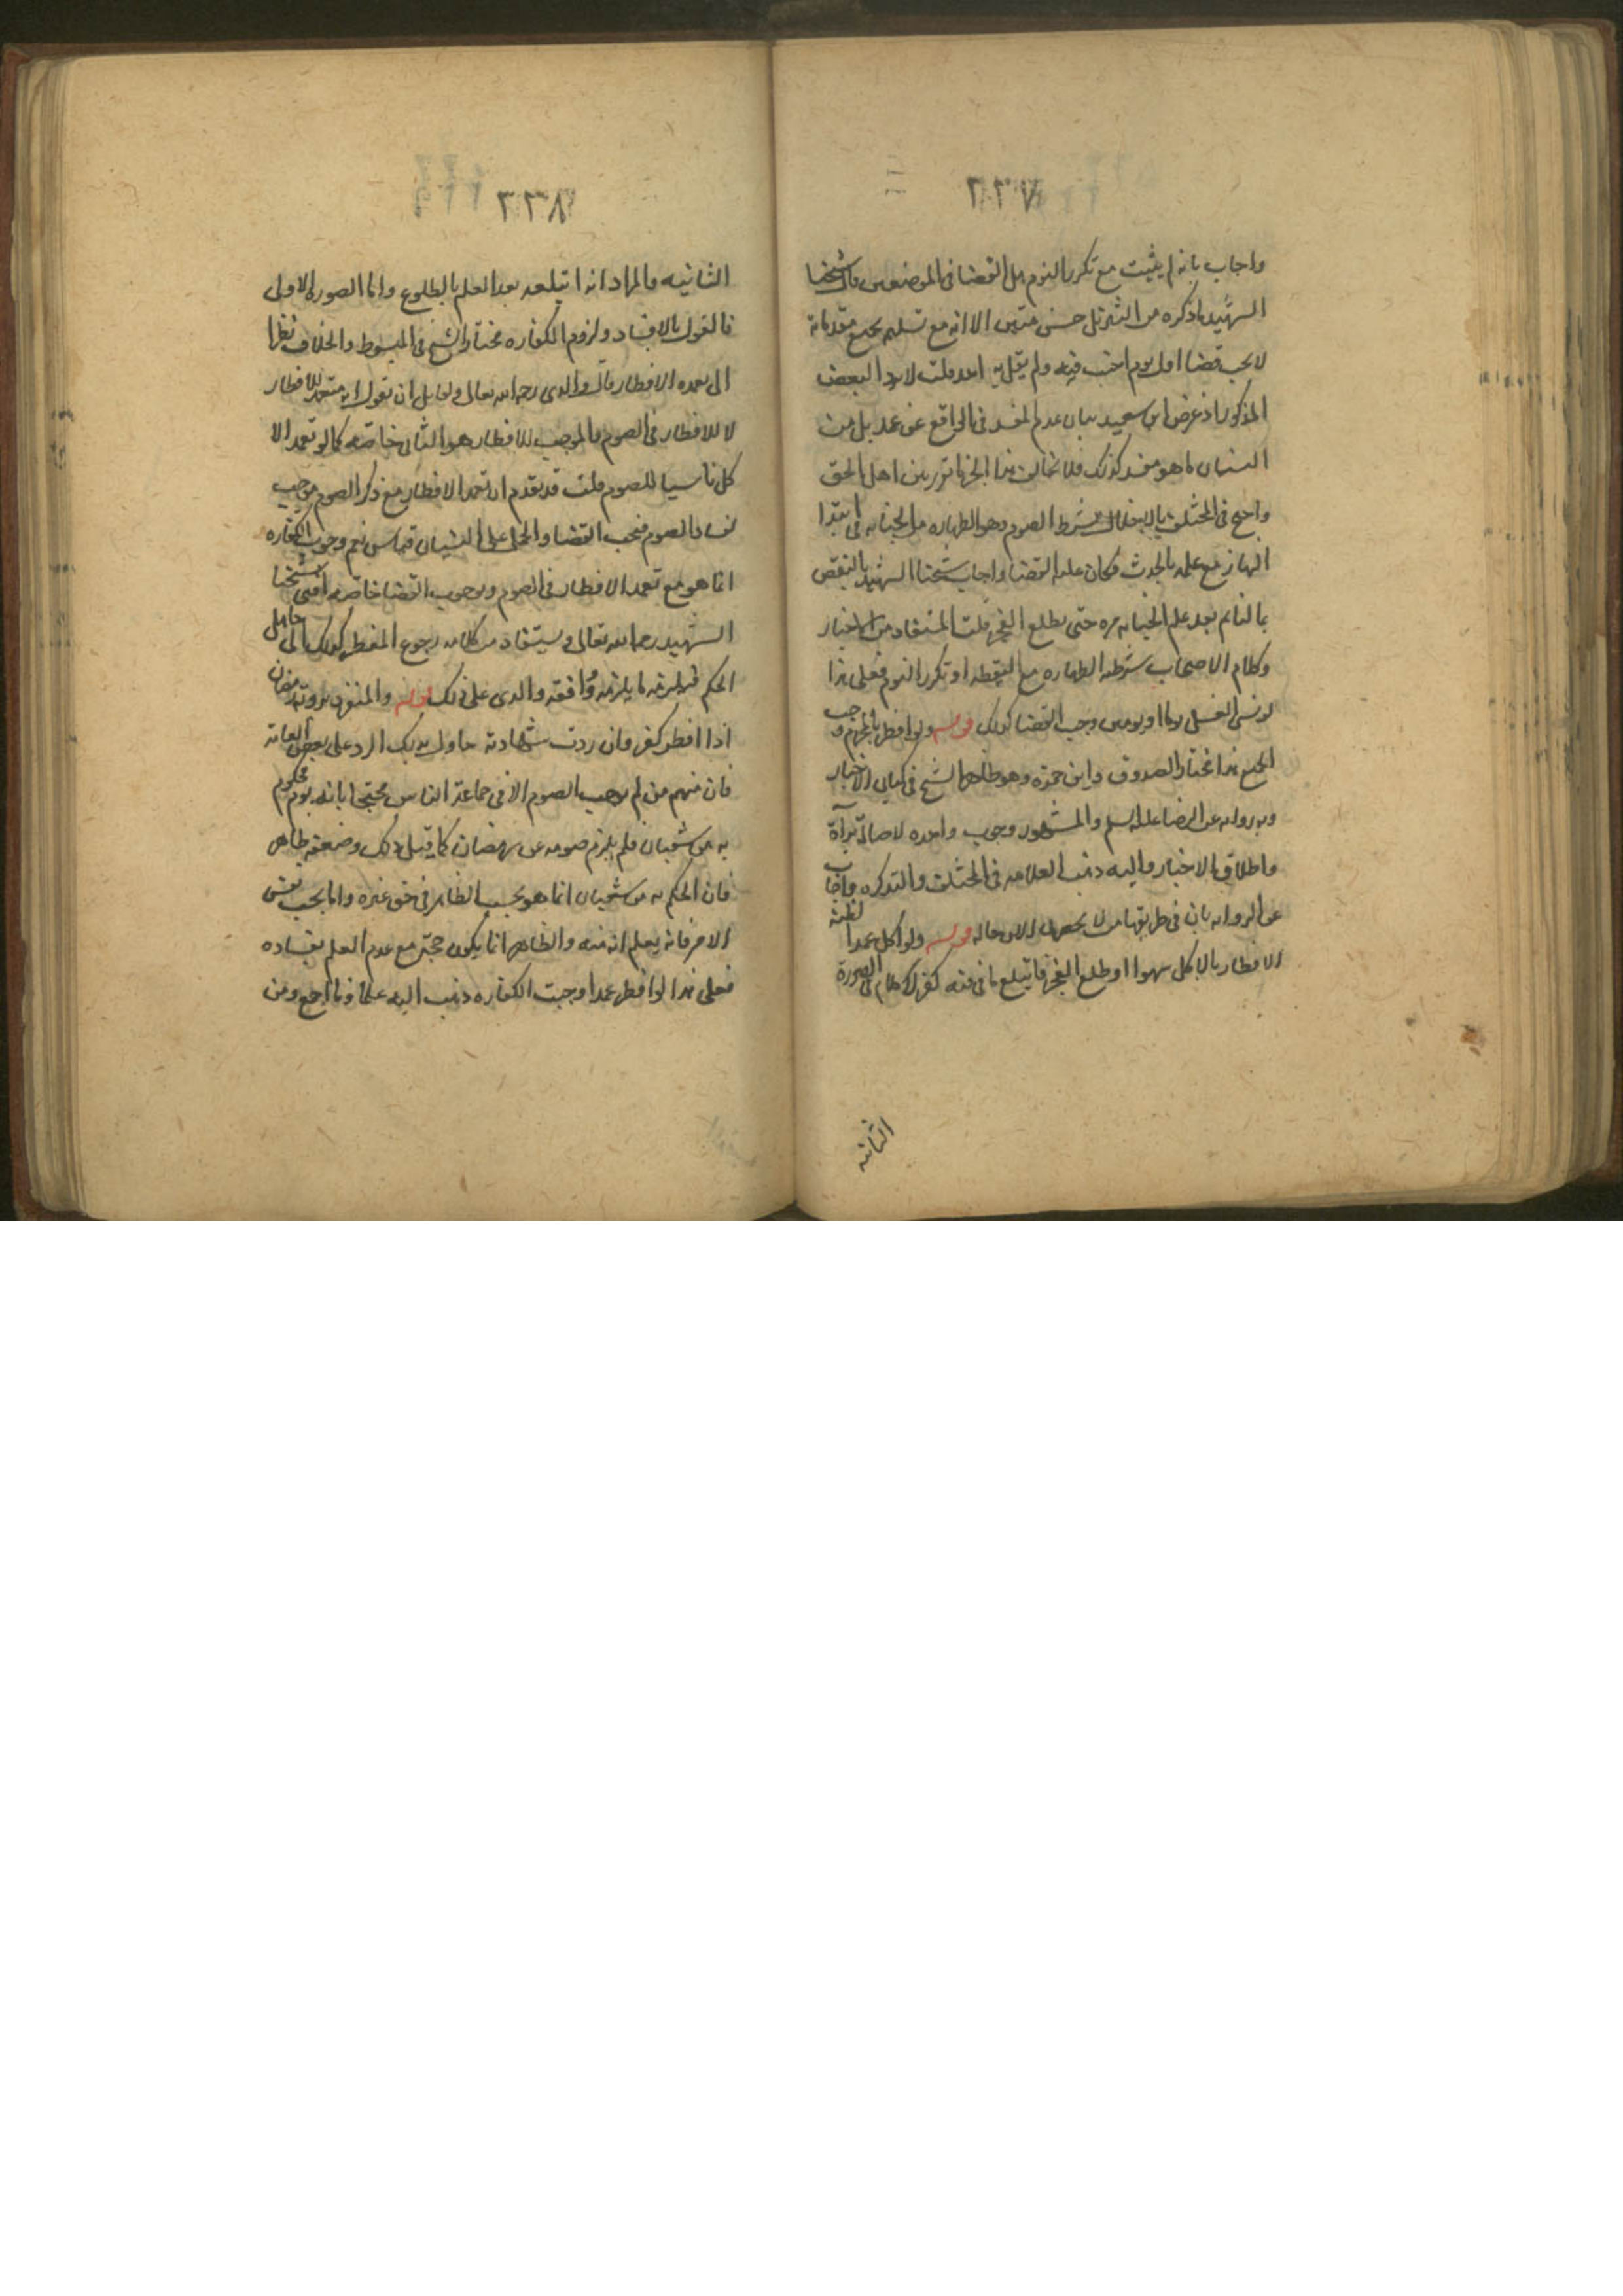 ٢٣٧
واجاب بانه لم يثبت مع تكرر النوم بل القضا في الموضعين قال شيخنا
الشهيد ما ذكره من التنزيل حسن متين الا انه مع تسليم جميع مقدماته
لا يجب قضا اول يوم اجنب فيه ولم يقل به احد قلت لا يرد البعض
المذكور اذ غرض ابن سعيد بيان عدم المفسد في الواقع عن عمد بل من
النسيان ما هو مفسد كذلك فلا تخالف هذا الخبر ما تقرر بين اهل الحق
واحتج في المختلف بالاخلال بشرط الصوم وهو الطهاره من الجنابه في ابتدا
النهار مع علمه بالحدث فكان عليه القضا واجاب شيخنا الشهيد بالنقض
بالنائم بعد علم الجنابه مره حتى يطلع الفجر قلت المستفاد من الاخبار
وكلام الاصحاب شرطيه الطهاره مع اليقظه او تكرر النوم فعلى هذا
لو نسى الغسل يوما او يومين وجب القضا كذلك قوله ولو افطر بالمحرم وجب
الجمع هذا مختار الصدوق وابن حمزه وهو ظاهر الشيخ في كتابي الاخبار
وبه روايه عن الرضا عليه السلم والمشهور وجوب واحده لاصالة براة
واطلاق الاخبار واليه ذهب العلامه في المختلف والتذكره واجاب
عن الروايه بان في طريقها من لا يحضرني الان حاله قوله ولو اكل عمدا لظنه
الافطار بالاكل سهوا او طلع الفجر فابتلع ما في فيه كفر لا كلام في الصورة
الثانيه
٢٣٨
الثانيه والمراد انه ابتلعه بعد العلم بالطلوع واما الصوره الاولى
فالقول بالافساد ولزوم الكفاره مختار الشيخ في المبسوط والخلاف نظرا
الى تعمده الافطار قال والدى رحمه الله تعالى ولقايل ان يقول انه متعمد للافطار
لا للافطار في الصوم والموجب للافطار هو الثاني خاصه كما لو تعمد الا
كل ناسيا للصوم قلت قد تقدم ان تعمد الافطار مع ذكر الصوم موجب
لفساد الصوم فيجب القضا والحمل على النسيان قياس نعم وجوب الكفاره
انما هو مع تعمد الافطار في الصوم وبوجوب القضا خاصه افتى شيخنا
الشهيد رحمه الله تعالى ويستفاد من كلامه رجوع المفطر كذلك الى جاهل
الحكم فيلزمه ما يلزمه وافقه والدى على ذلك قوله والمنفرد برؤية رمضان
اذا افطر كفر وان ردت شهادته حاول بذلك الرد على بعض العامه
فان منهم من لم يوجب الصوم الا في جماعة الناس محتجا بانه يوم محكوم
به من شعبان فلم يلزم صومه عن رمضان كما قبل ذلك وضعفه ظاهر
فان الحكم به من شعبان انما هو بحسب الظاهر في حق غيره واما بحسب نفس
الامر فانه يعلم انه منه والظاهر انما يكون حجة مع عدم العلم بفساده
فعلى هذا لو افطر عمدا وجبت الكفاره ذهب اليه علماؤنا اجمع ومن